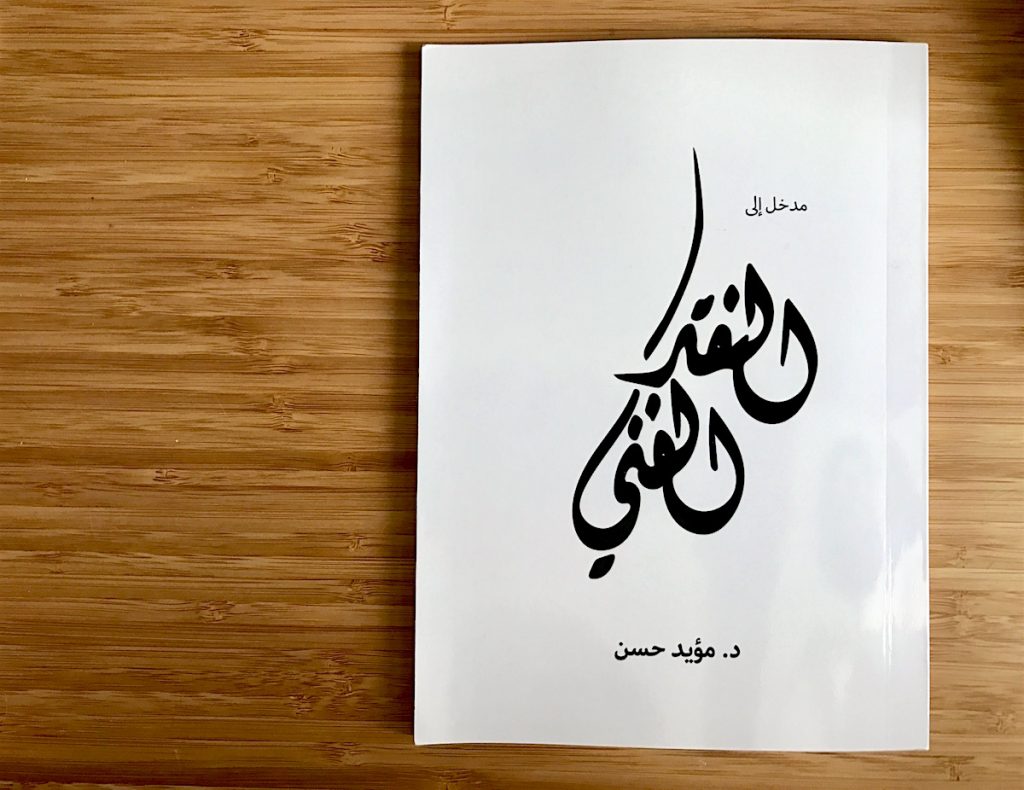 مدخل إلى
النقد
الفني
د. مؤيد حسن